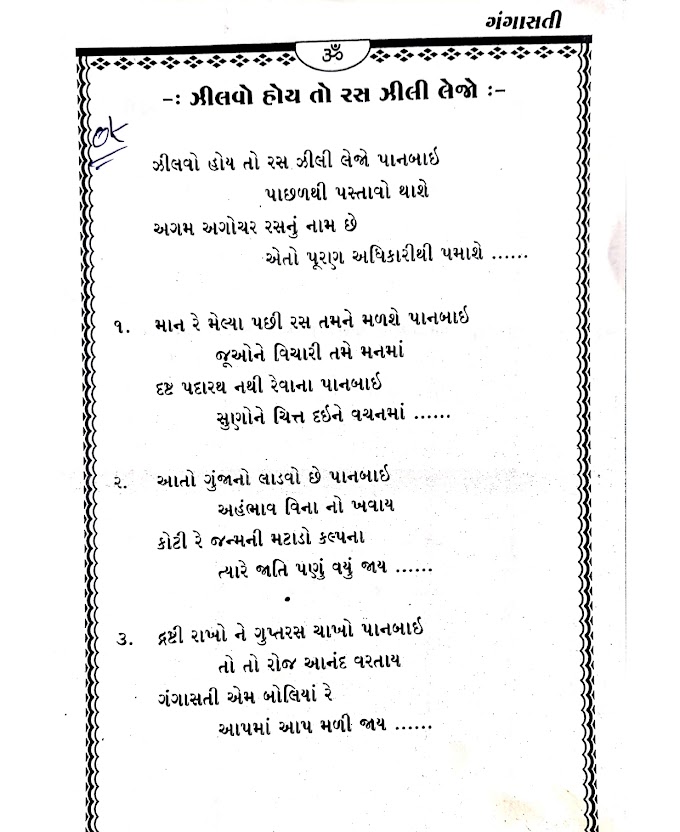 ગંગાસતી
ૐ
-ઃ ઝીલવો હોય તો રસ ઝીલી લેજો ઃ-
ok
ઝીલવો હોય તો રસ ઝીલી લેજો પાનબાઇ
પાછળથી પસ્તાવો થાશે
અગમ અગોચર રસનું નામ છે
એતો પૂરણ અધિકારીથી પમાશે ......
૧. માન રે મેલ્યા પછી રસ તમને મળશે પાનબાઇ
જૂઓને વિચારી તમે મનમાં
દૃષ્ટ પદારથ નથી રેવાના પાનબાઇ
સુણોને ચિત્ત દઇને વચનમાં ......
૨. આતો ગુંજાનો લાડવો છે પાનબાઇ
અહંભાવ વિના નો ખવાય
કોટી રે જન્મની મટાડો કલ્પના
ત્યારે જાતિ પણું વયું જાય ......
૩. દ્રષ્ટી રાખો ને ગુપ્તરસ ચાખો પાનબાઇ
તો તો રોજ આનંદ વરતાય
ગંગાસતી એમ બોલિયાં રે
આપમાં આપ મળી જાય ......